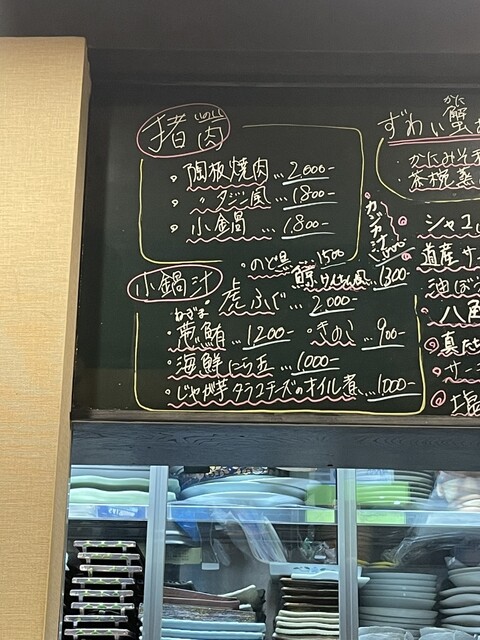 猪肉
いのしし
・陶板焼肉…2000-
・〃 タジン風…1800-
・小鍋…1.800-
小鍋汁
・のど黒 1500
鯨 けんちん風…1300-
虎ふぐ…2000-
ねぎま
・葱鮪…1200-
・きのこ…900-
・海鮮にら玉…1000-
・じゃが芋タラコチーズのオイル煮…1000-
カジカ汁
かに
ずわい蟹
・かにみそ
・茶椀蒸
シャコ
道産サー
油ぼう
八角
真たち
サー
塩